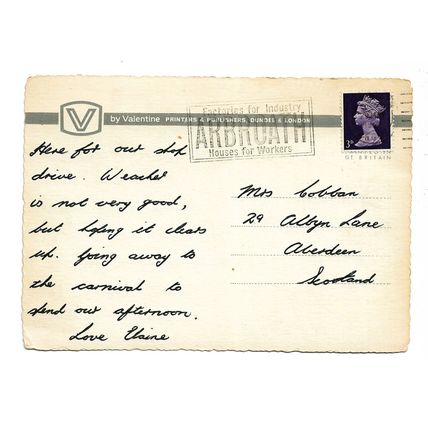 V by Valentine PRINTERS & PUBLISHERS, DUNDEE & LONDON
Factories for Industry
ARBROATH
Houses for Workers
3D
OF BRITAIN
Here for out stop
drive. Weather
is not very good,
but hoping it clears
up. Going away to
the carnival to
spend out afternoon.
Love Elaine
Mrs Cobban
29 Albyn Lane
Aberdeen
Scotland